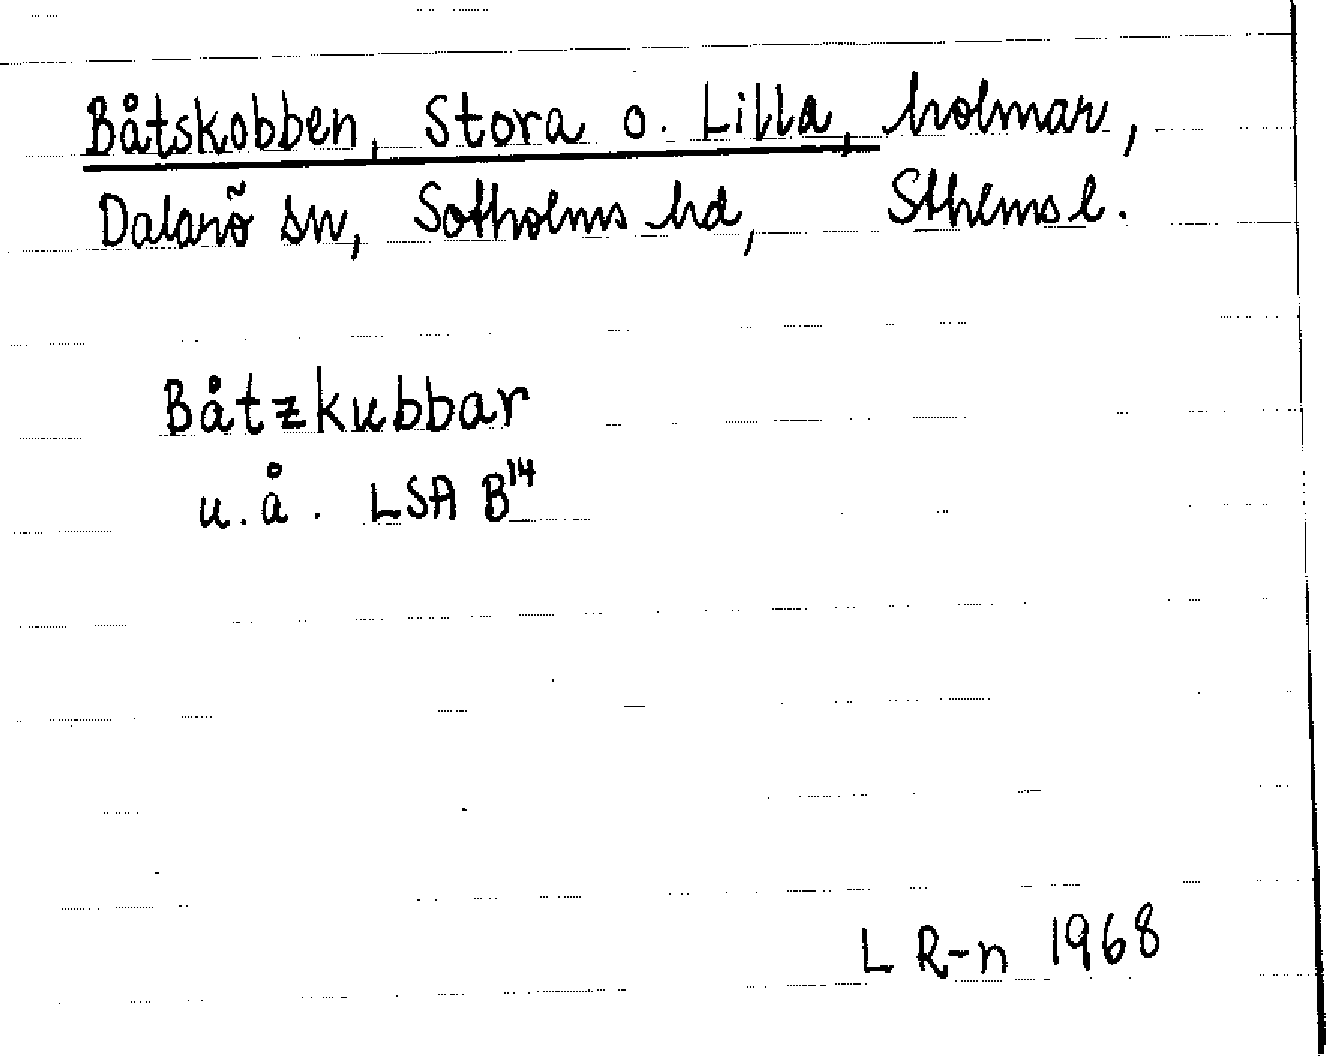 Båtskobben, Stora o. Lilla, holmar,
Dalarö sn, Sotholms hd, Sthlms l.
Båtzkubbar
u.å. LSA B¹⁴
L R-n 1968